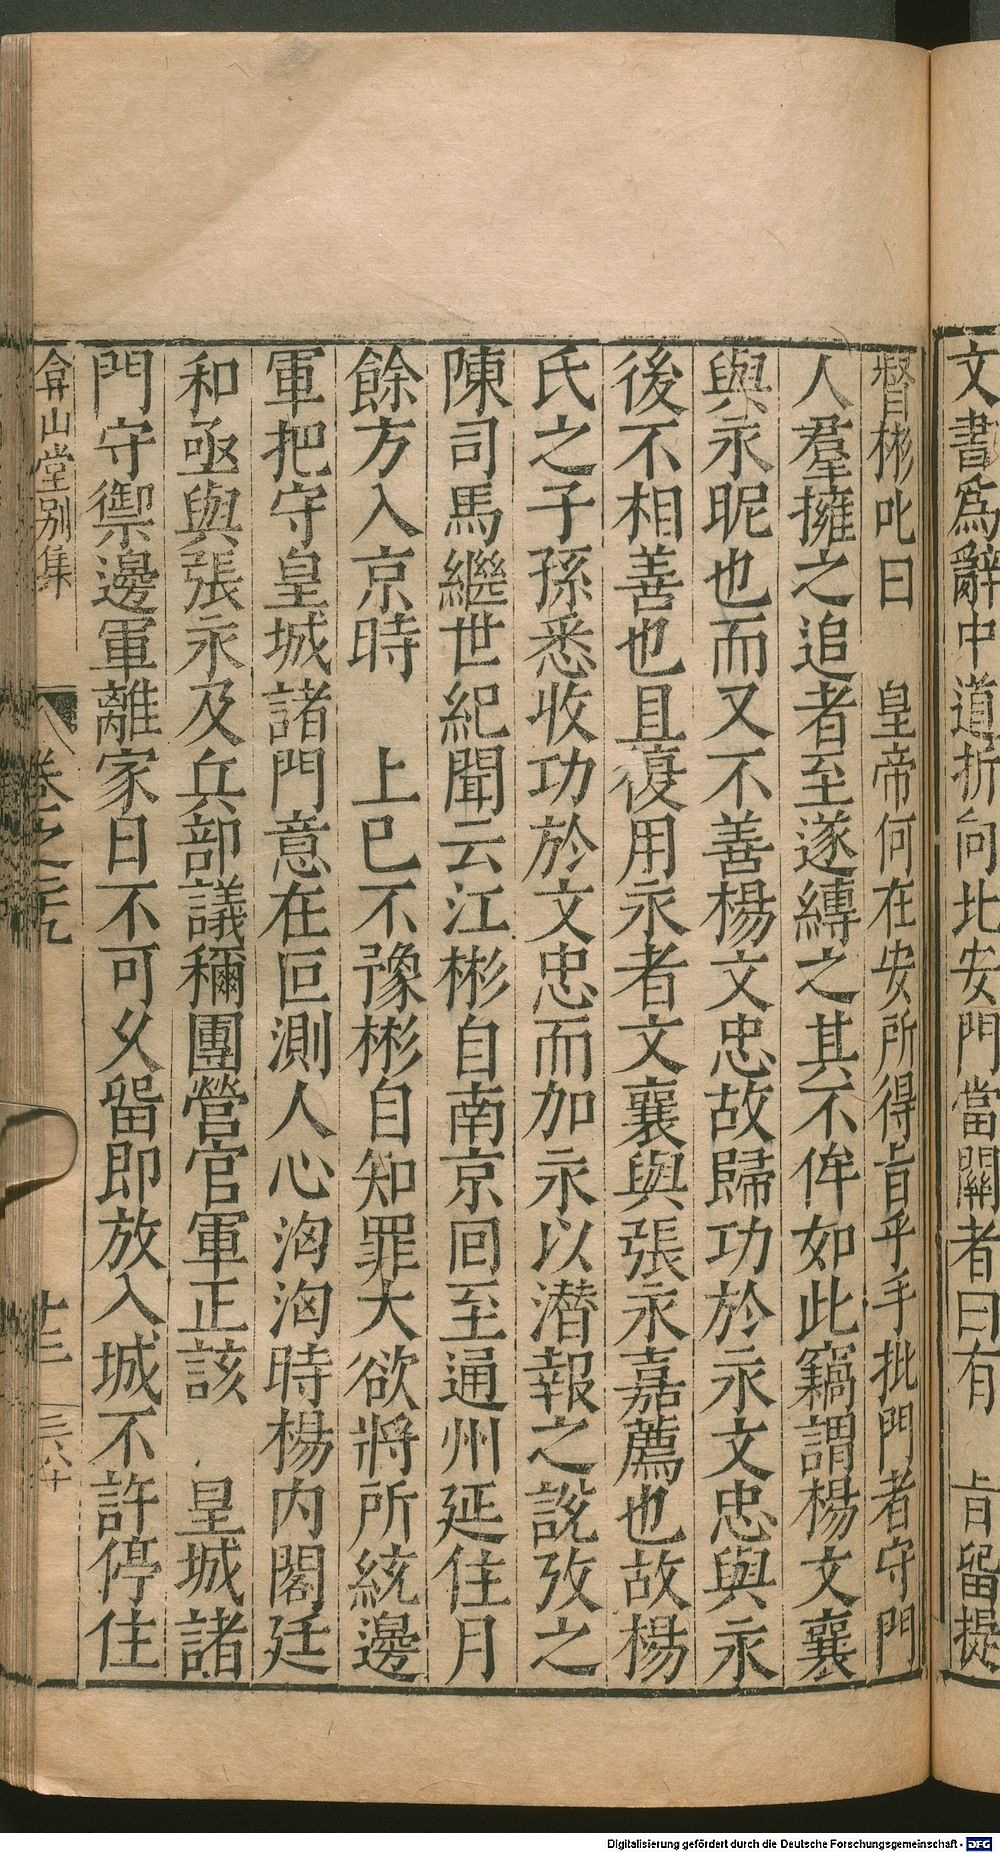 文書爲辭中道折向北安門當關者曰有　旨留提
督彬叱曰　皇帝何在安所得旨乎手批門者守門
人羣擁之追者至遂縛之其不侔如此竊謂楊文襄
與永昵也而又不善楊文忠故歸功於永文忠與永
後不相善也且復用永者文襄與張永嘉薦也故楊
氏之子孫悉收功於文忠而加永以潛報之說攷之
陳司馬繼世紀聞云江彬自南京回至通州延住月
餘方入京時　上已不豫彬自知罪大欲將所統邊
軍把守皇城諸門意在叵測人心洶洶時楊內閣廷
和亟與張永及兵部議稱團營官軍正該　皇城諸
門守禦邊軍離家日不可久留即放入城不許停住
弇山堂別集　卷之二九　十三　三八十
Digitalisierung gefördert durch die Deutsche Forschungsgemeinschaft - DFG